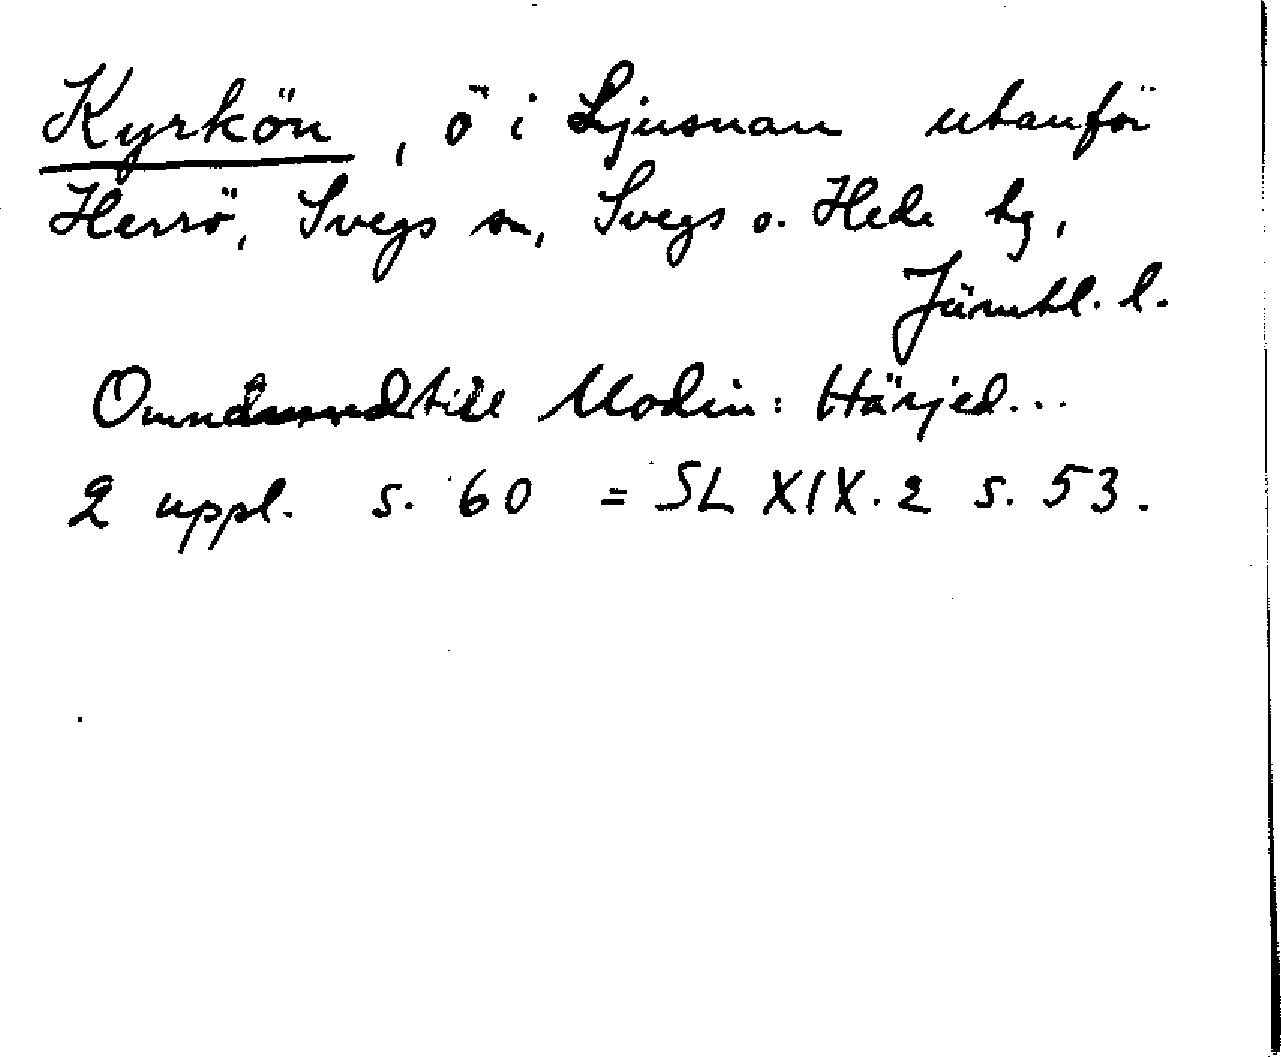 Kyrkön, ö i Ljusnan utanför
Herrö, Svegs sn, Svegs o. Hede hg,
Jämtl. l.
Omnämnd till Modin: Härjed...
2 uppl. s. 60 = SL XIX.2 s. 53.